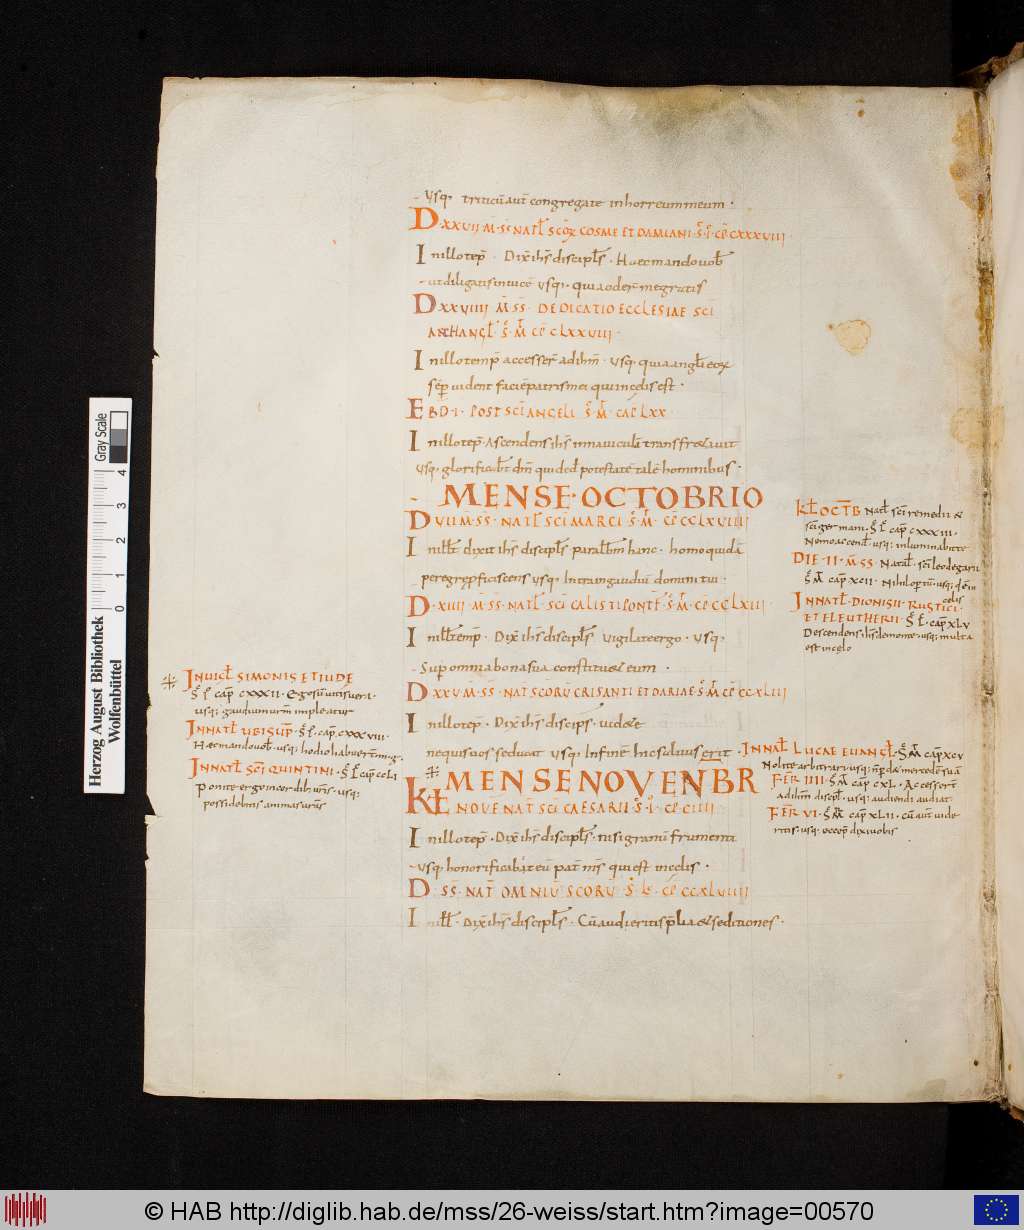 usq· triticū aut̄ congregate inhorreum meum·
D· XXVII· M̄· SS̄ NATL̄ SCŌꝜ COSME ET DAMIANI· S̄· I· CP̄ CXXXVIII·
Inillotep̄· Dix̄ ihs̄ discipl̄s· Haec mando vob̄
ut diligatis invicē usq· quia oder̄ me gratis
D· XXVIIII M̄ SS̄· DEDICATIO ECCLESIAE SCĪ
ARCHANGL̄· S̄· M̄ CP̄ CLXXVIIII·
Inillotemp̄ accesser̄ ad ihm̄· usq· quia angl̄i eoꝝ
sēp vident faciē patris mei qui in celis est·
EBD· I· POST SCĪ ANGELI S̄· M̄· CAP̄ LXX
Inillotep̄· Ascendens ihs̄ in naviculā transfretavit
usq· glorificab̄t dm̄ qui ded̄ potestatē talē hominibus·
MENSE· OCTOBRIO
D VII· M̄· SS̄· NATL̄ SCĪ MARCI S̄· M̄· CP̄ CCLXVIIII
Inillt̄ dixit ihs̄ discipl̄s parabl̄m hanc· homo quidā
peregre p̄ficiscens usq· Intra in gaudiū domini tui·
D· XIIII· M̄· SS̄· NATL̄· SCĪ CALISTI PONTF̄· S̄· M̄· CP̄ CCLXIII·
Inillt̄emp̄· Dix̄ ihs̄ discipl̄s Vigilate ergo· usq·
Sup̄ omnia bona sua constituet eum·
D XXV· M̄· SS̄· NAT SCORŪ CRISANTI ET DARIAE· S̄· M̄ CP̄ CCXLIII
Inillotep̄· Dix̄ ihs̄ discips· videte
nequis vos seducat usq· Infinē hic salvus erit·
MENSE NOVENBR
KL̄ NOVĒ· NAT̄ SCĪ CAESARII· S̄· I· CP̄ CIIII
Inillotep̄· Dix̄ ihs̄ discipl̄s· nisi granū frumenta
usq· honorificabit eū pat̄ ms̄ qui est in celis·
D· SS̄· NAT̄ OMNIŪ SCORŪ S̄· L̄· CP̄ CCXLVIIII
Inill̄· Dix̄ ihs̄ discipl̄s· Cū audieritis p̄lia et seditiones·
KL̄ OCTB̄ Natl̄ scī remedii &
scī germani· S̄ L̄ cap̄ CXXXIII·
Nemo accend̄· usq· in lumin habitte
DIE· II· M̄· SS· Natal̄· scī leodegarii
S̄ M̄ cap̄ XCII· Nihil opertū· usq· qui in
celis
IN NATL̄· DIONISII· RUSTICI·
ET ELEUTHERII· S̄ L̄· cap̄ XLV
Descendens ihs̄ de monte· usq· multa
est in celo
IN NAT̄L LUCAE EUANGL̄· S̄ M̄ cap̄ XCV
Nolite arbitrari· usq· n̄ p̄dā mercedē suā
FER̄ IIII S̄ M̄ cap̄ CXL· Accesser̄t
ad ihm̄ discipl̄· usq· audiendi audiat
FER̄ VI· S̄ M̄ cap̄ XLII· cū aut̄ vide
ritis· usq· ecce p̄dixi vobis
IN UIGL̄ SIMONIS ET IUDE
S̄ L̄ cap̄ CXXXII· Ego sū vitis vera·
usq· gaudium vrm̄ impleatur
IN NATL̄ UBI SUP̄· S̄ L̄· cap̄· CXXXVIII·
Haec mando vob̄· usq· hodio habuer̄t me g·
IN NATL̄ SCĪ QUINTINI· S̄ L̄ cap̄ CCLI
Ponite ergo in cordib; urīs· usq;
possidebitis animas urīs
Herzog August Bibliothek
Wolfenbüttel
Gray Scale
0 1 2 3 4
© HAB http://diglib.hab.de/mss/26-weiss/start.htm?image=00570